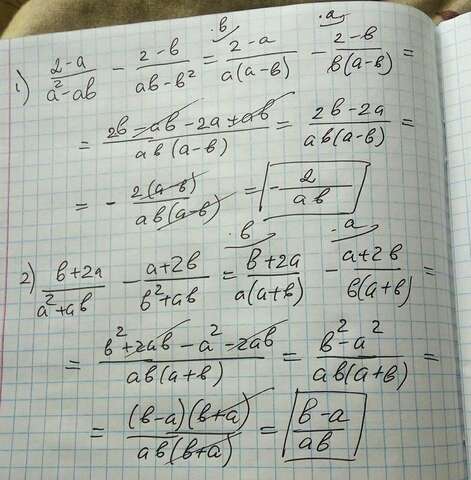 1) (2-a)/(a²-ab) - (2-b)/(ab-b²) = (2-a)/(a(a-b)) ·b - (2-b)/(b(a-b)) ·a =
= (2b-ab-2a+ab)/(ab(a-b)) = (2b-2a)/(ab(a-b)) =
= - 2(a-b)/(ab(a-b)) = - 2/(ab)
2) (b+2a)/(a²+ab) - (a+2b)/(b²+ab) = (b+2a)/(a(a+b)) ·b - (a+2b)/(b(a+b)) ·a =
= (b²+2ab-a²-2ab)/(ab(a+b)) = (b²-a²)/(ab(a+b)) =
= (b-a)(b+a)/(ab(b+a)) = (b-a)/(ab)